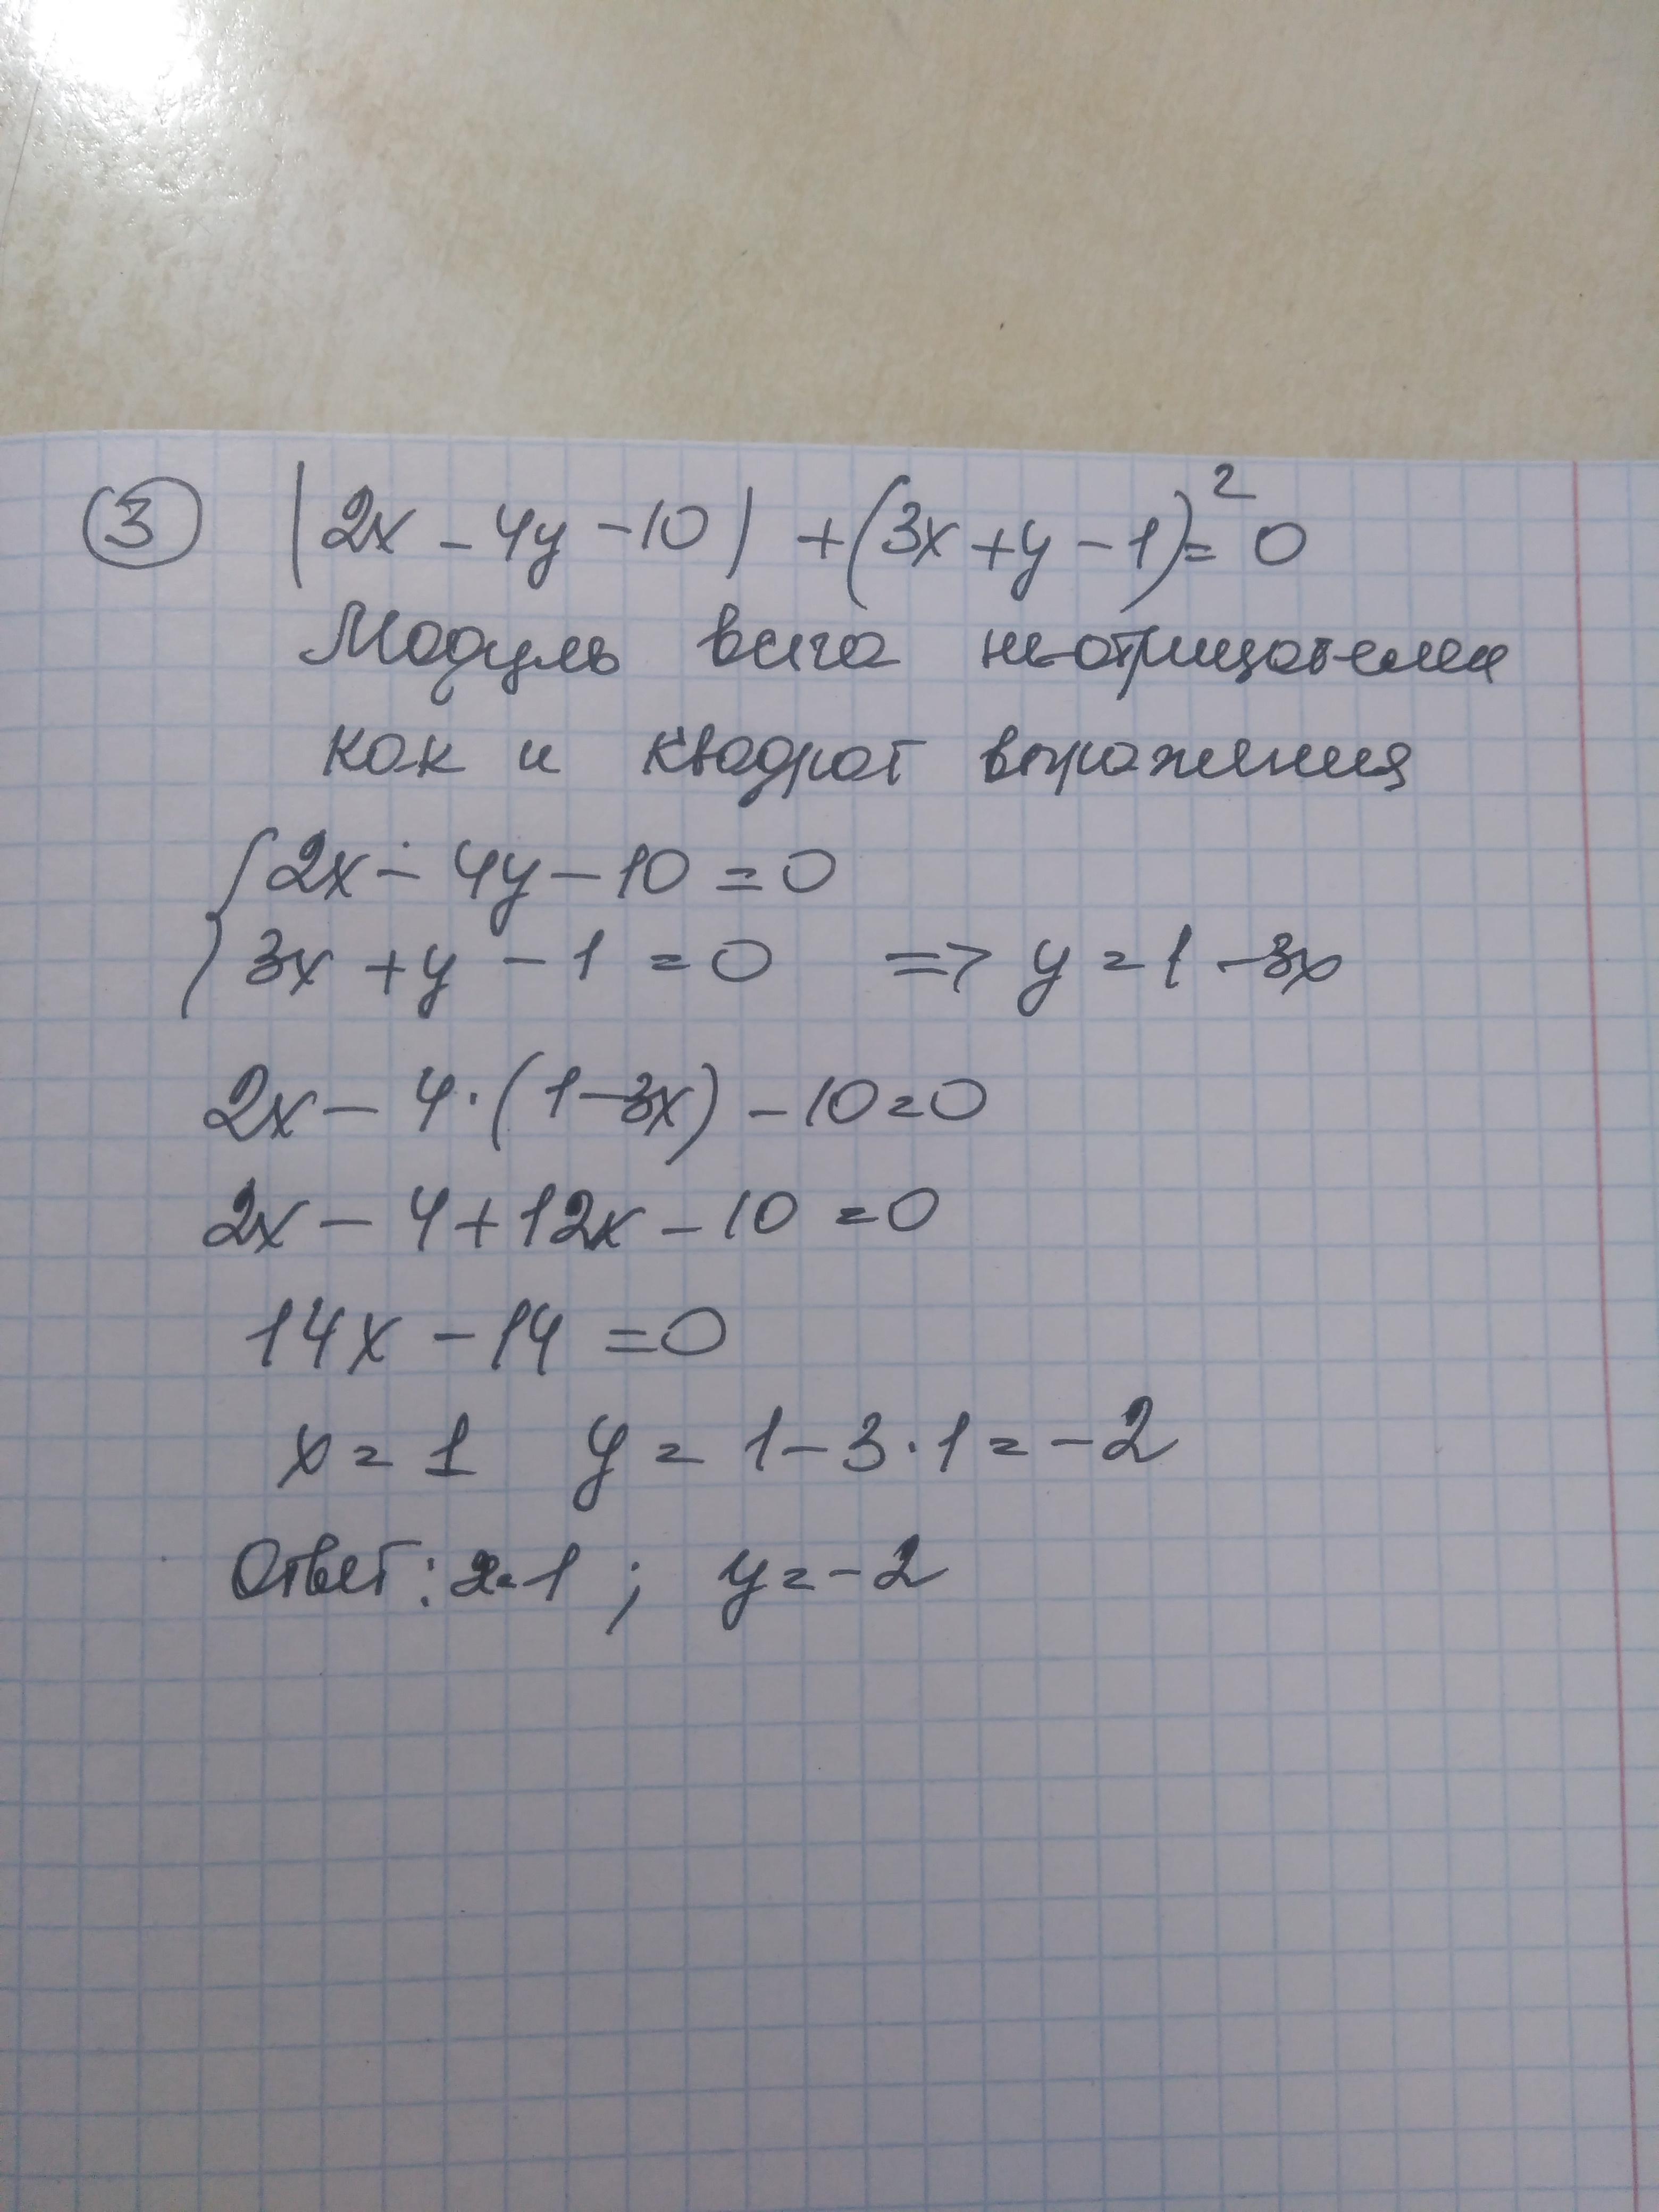 ③ |2x - 4y - 10| + (3x + y - 1)² = 0
Модуль всегда неотрицателен
как и квадрат выражения
{ 2x - 4y - 10 = 0
3x + y - 1 = 0 => y = 1 - 3x
2x - 4·(1 - 3x) - 10 = 0
2x - 4 + 12x - 10 = 0
14x - 14 = 0
x = 1 y = 1 - 3·1 = -2
Ответ: x = 1 ; y = -2